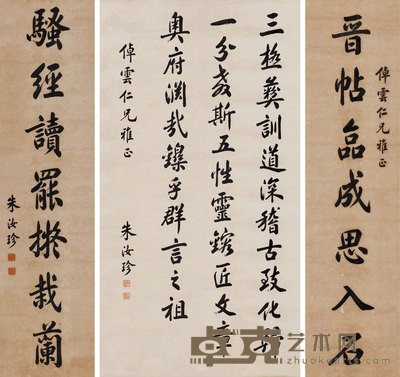 晉帖臨成思入石
倬雲仁兄雅正
三極彝訓道深稽古致化歸
一分教斯五性靈鎔匠文章
奧府淵哉鑠乎群言之祖
倬雲仁兄雅正
朱汝珍
騷經讀罷擬栽蘭
朱汝珍
卓克艺术网